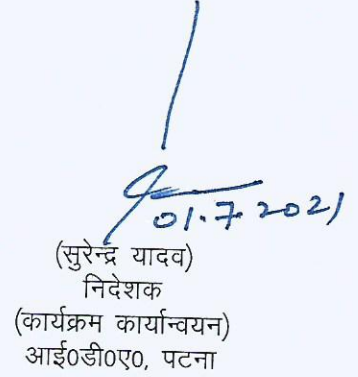 01.7.2021
(सुरेन्द्र यादव)
निदेशक
(कार्यक्रम कार्यान्वयन)
आई०डी०ए०, पटना